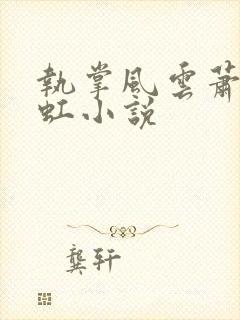 執掌風雲蕭
虹小說
龔轩